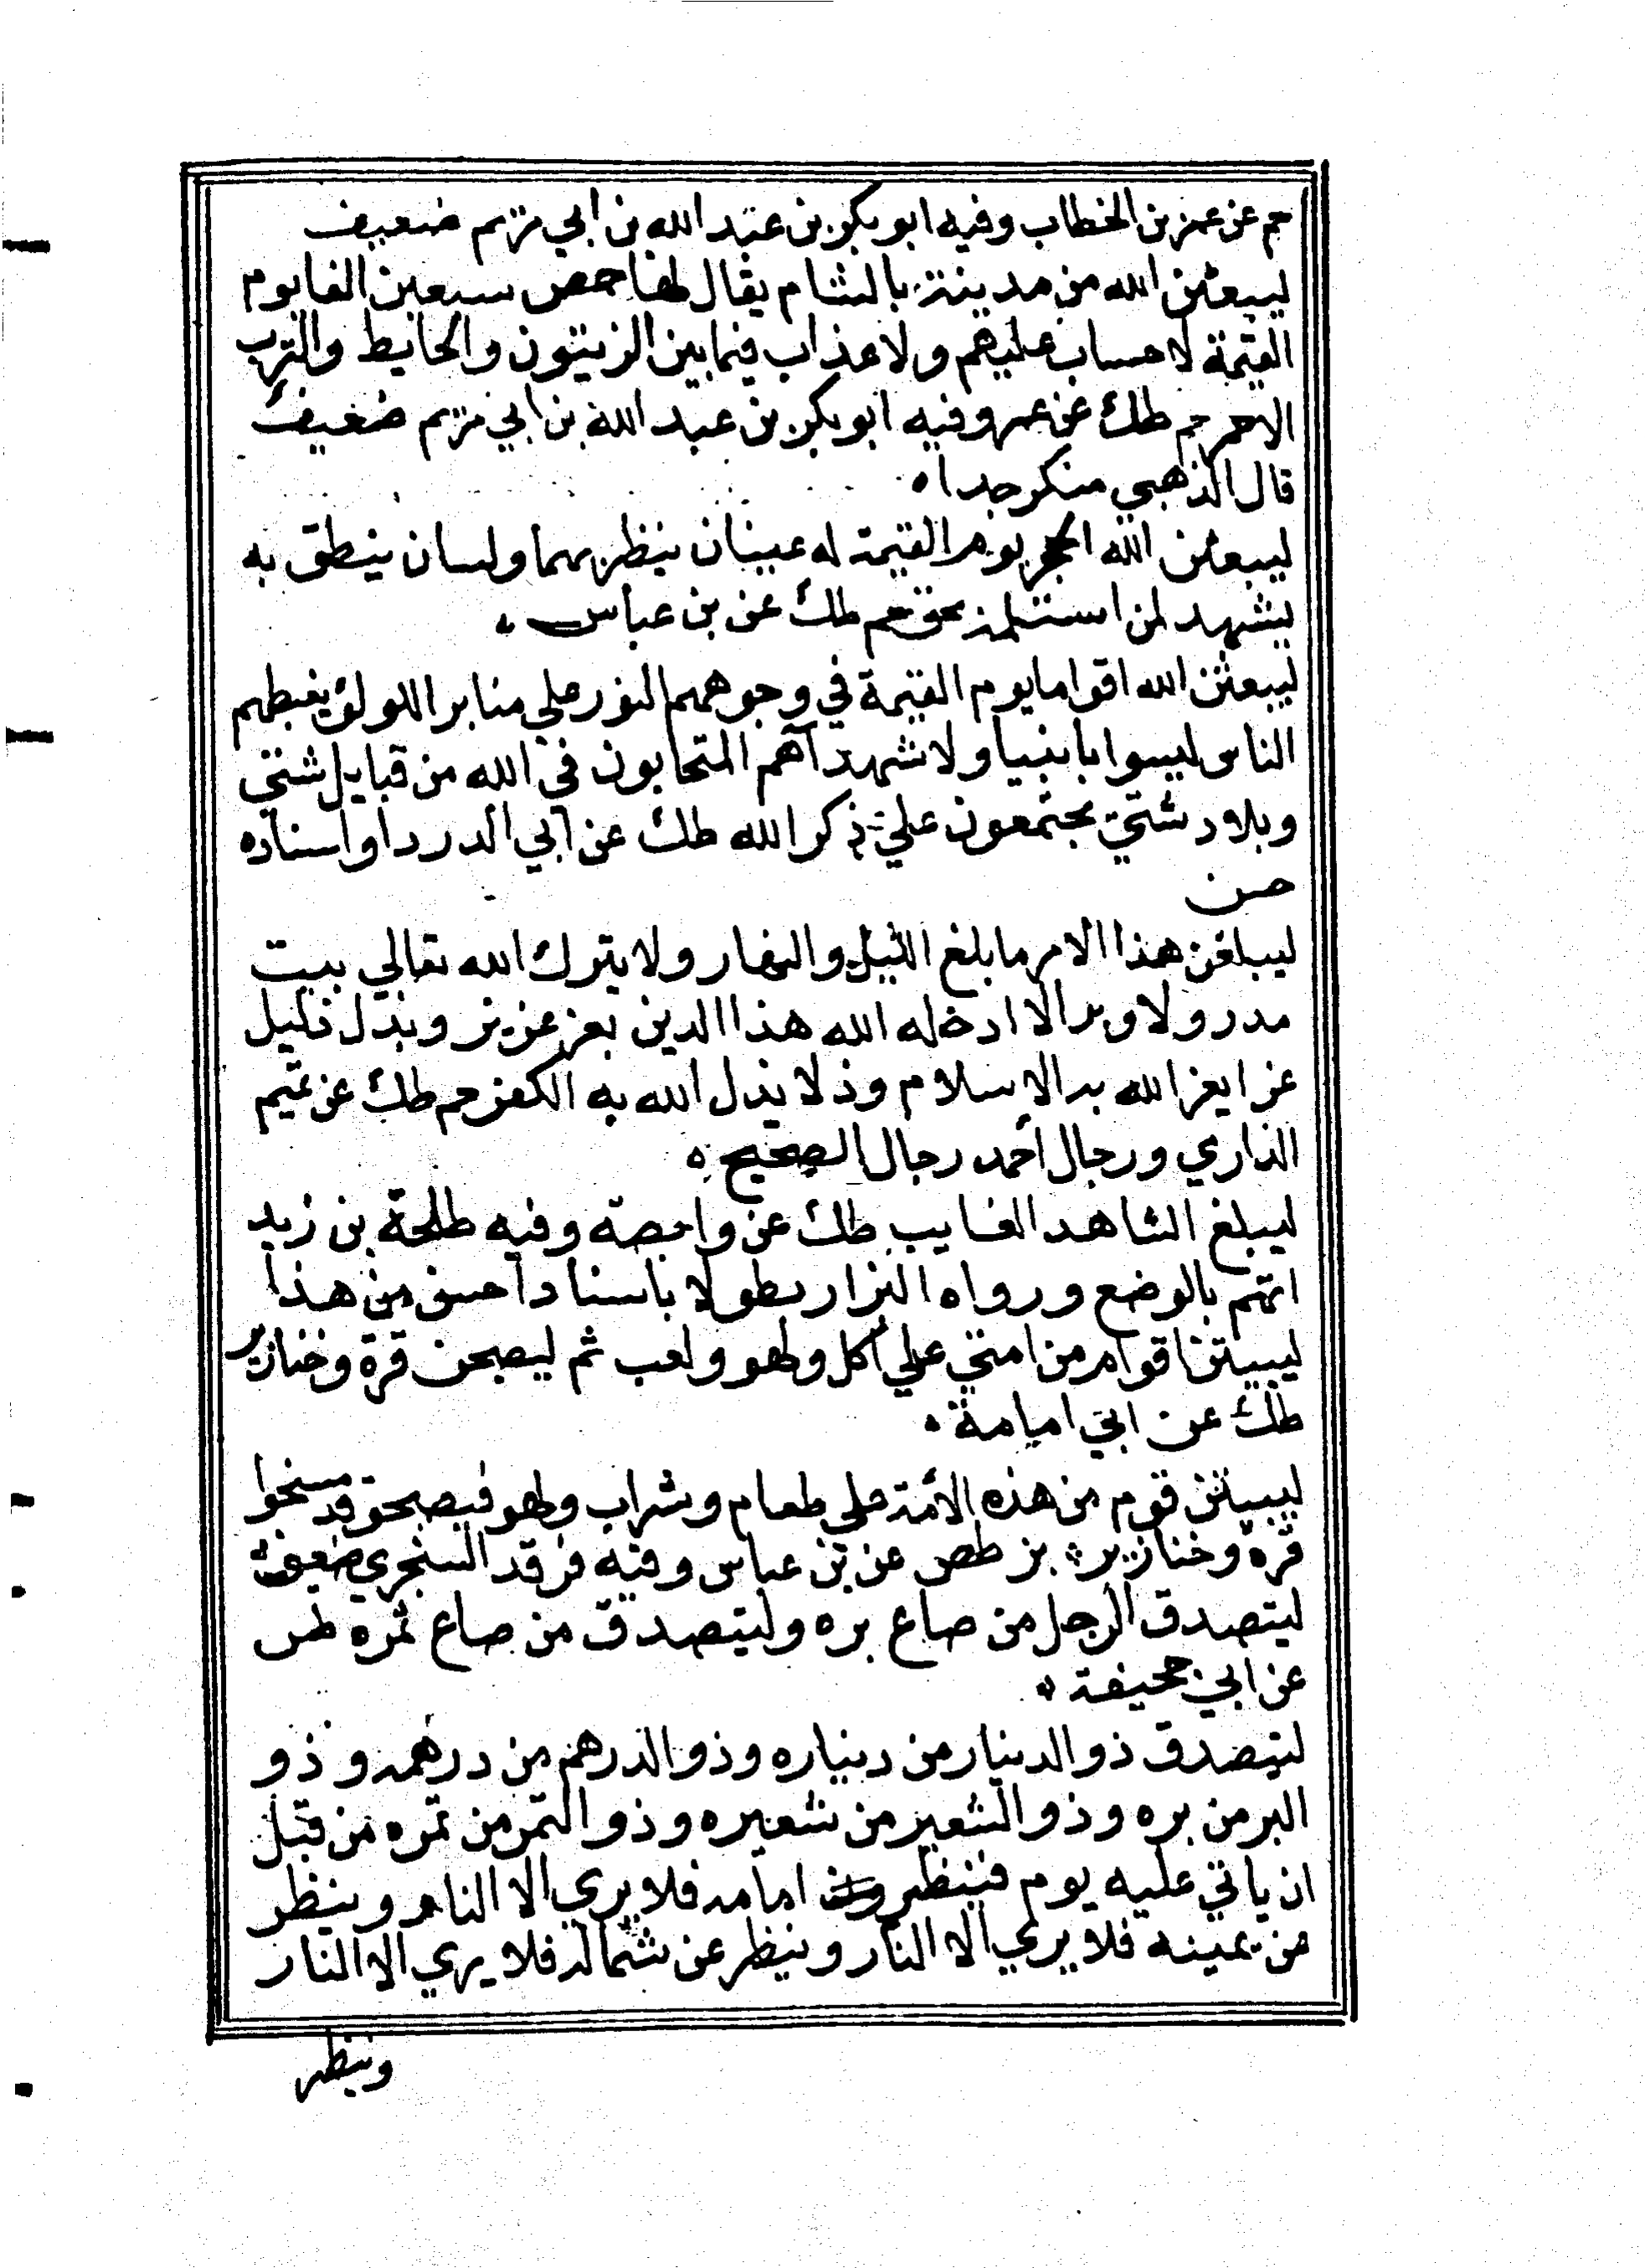 حم عن عمر بن الخطاب وفيه ابو بكر بن عبد الله بن ابي مريم ضعيف
ليبعثن الله من مدينة بالشام يقال لها حمص سبعين الفا يوم
القيمة لا حساب عليهم ولا عذاب فيما بين الزيتون والحايط والترب
الاحمر حم طك عن عمر وفيه ابو بكر بن عبد الله بن ابي مريم ضعيف
قال الذهبي منكر جدا ه
ليبعثن الله الحجر يوم القيمة له عينان ينظر بهما ولسان ينطق به
يشهد لمن استلمه بحق حم طك عن بن عباس
ليبعثن الله اقواما يوم القيمة في وجوههم النور علي منابر اللولؤ يغبطهم
الناس ليسوا بانبيا ولا شهدآهم المتحابون في الله من قبايل شتي
وبلاد شتي مجتمعون علي ذكر الله طك عن ابي الدردا واسناده
حسن
ليبلغن هذا الامر ما بلغ الليل والنهار ولا يترك الله تعالي بيت
مدر ولا وبر الا ادخله الله هذا الدين بعز عزيز وبذل ذليل
عزا يعز الله به الاسلام وذلا يذل الله به الكفر حم طك عن تميم
الداري ورجال أحمد رجال الصحيح ه
ليبلغ الشاهد الغايب طك عن وابصة وفيه طلحة بن زيد
اتهم بالوضع ورواه البزار بطولا باسناد احسن من هذا
ليبيتن اقوام من امتي علي أكل ولهو ولعب ثم ليصبحن قرة وخنازير
طك عن ابي امامة
ليبيتن قوم من هذه الأمة علي طعام وشراب ولهو فيصبحو قد مسخوا
قرة وخنازير بز طص عن بن عباس وفيه فرقد السنجري ضعيف
ليتصدق الرجل من صاع بره وليتصدق من صاع تمره طس
عن ابي جحيفة ه
ليتصدق ذو الدينار من ديناره وذو الدرهم من درهمه وذو
البر من بره وذو الشعير من شعيره وذو التمر من تمره من قبل
ان ياتي عليه يوم فينظر امامه فلا يري الا النار وينظر
من يمينه فلا يري الا النار وينظر عن شماله فلا يري الا النار
وينظر